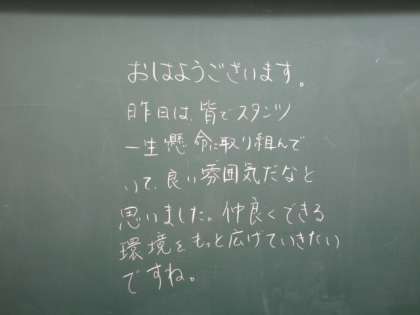 おはようございます。
昨日は、皆でスタンツ
一生懸命に取り組んで
いて、良い雰囲気だなと
思いました。仲良くできる
環境をもっと広げていきたい
ですね。